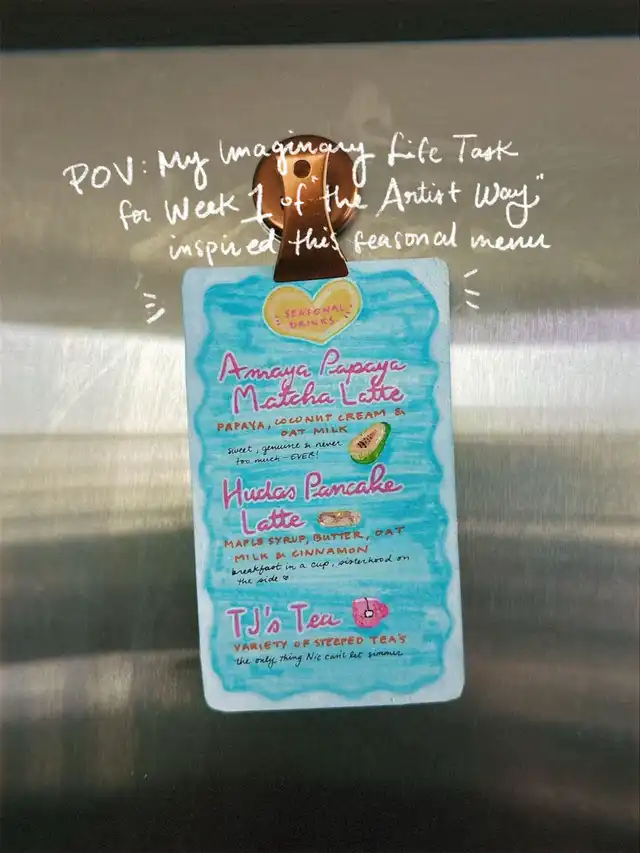 POV: My Imaginary Life Task
for Week 1 of "the Artist Way"
inspired this seasonal menu
SEASONAL
DRINKS
Amaya Papaya
Matcha Latte
PAPAYA, COCONUT CREAM &
OAT MILK
sweet, genuine & never
too much - EVER!
Hudas Pancake
Latte
MAPLE SYRUP, BUTTER, OAT
MILK & CINNAMON
breakfast in a cup, sisterhood on
the side
TJ's Tea
VARIETY OF STEEPED TEA'S
the only thing Nic can't let simmer